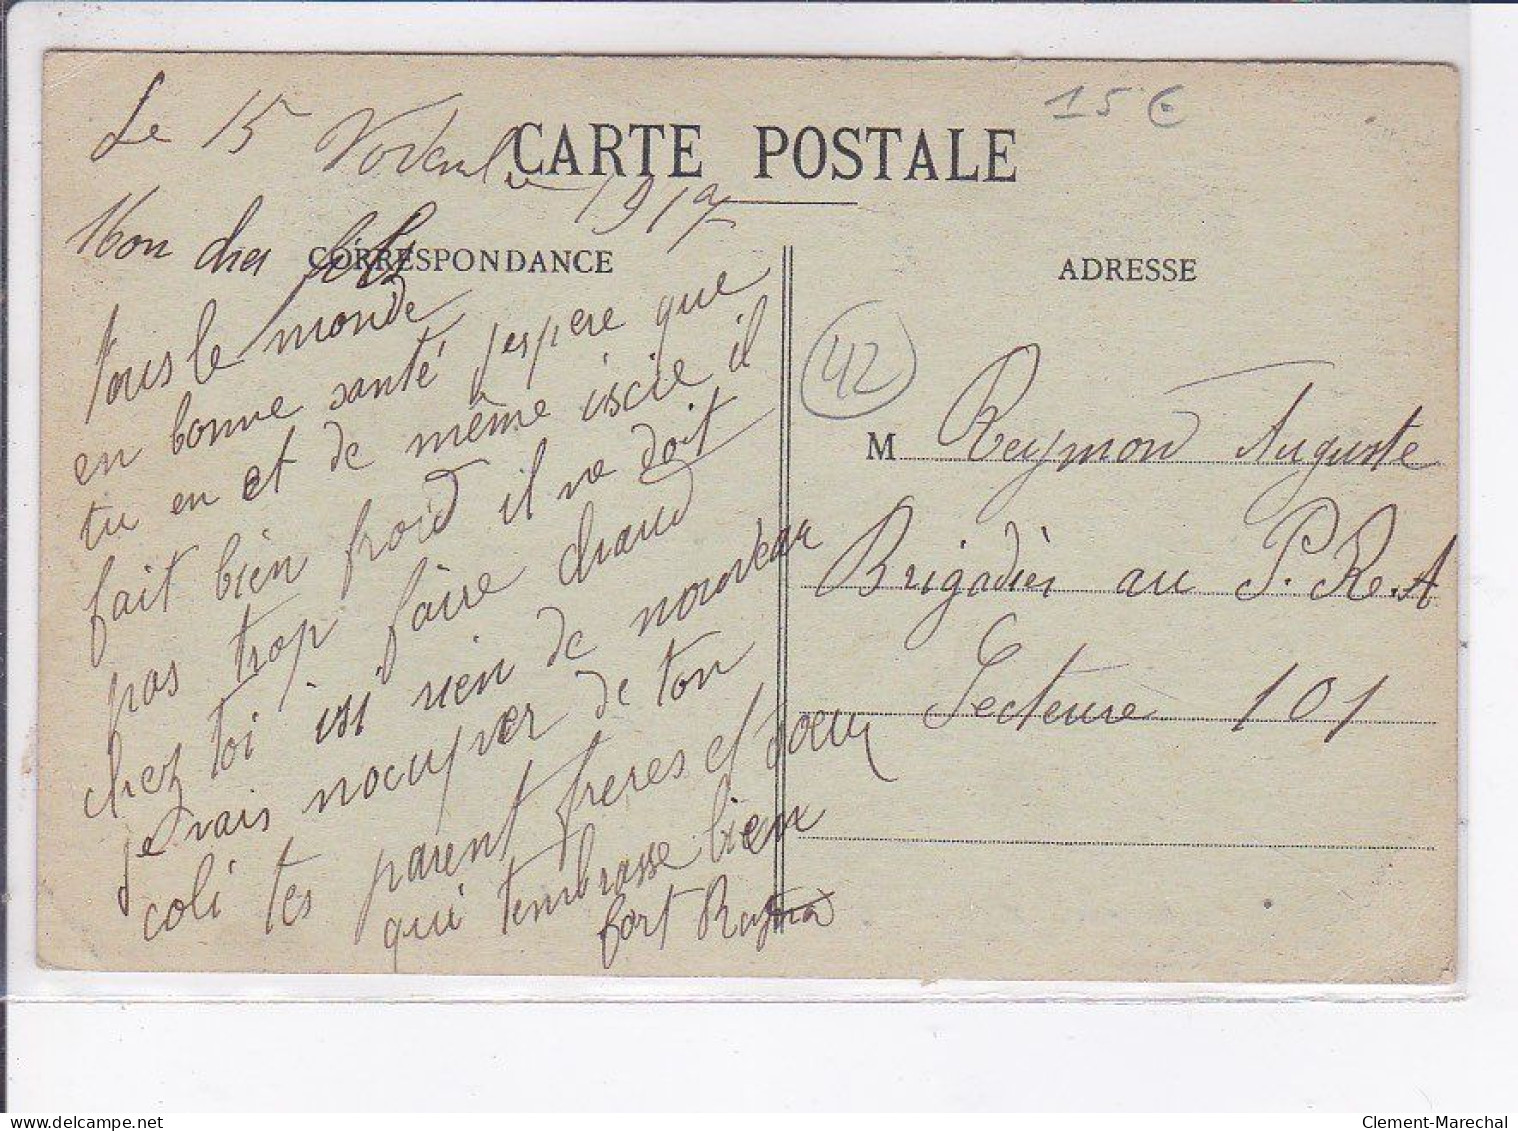 15 €
Le 15 Novembre 1917
CARTE POSTALE
CORRESPONDANCE
ADRESSE
Mon cher fils
tous le monde
en bonne santé j'espere que
tu en et de même iscie il
fait bien froid il ne doit
pas trop faire chaud
chez toi issi rien de nouveau
je vais nocuper de ton
coli tes parent freres et soeur
qui tembrasse bien
fort Reymon
42
M Reymond Auguste
Brigadier au P.R.A
Secteure 101
www.delcampe.net
Clement-Marechal